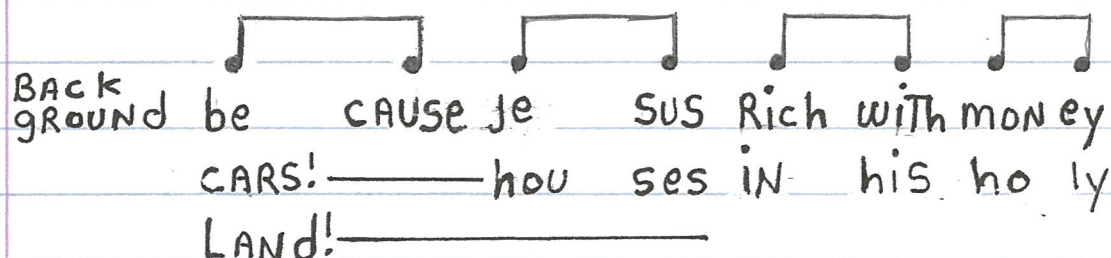 BACK
gROUNd be CAUSE je SUS Rich wiTh moN ey
CARS! hou ses iN his ho ly
LANd!